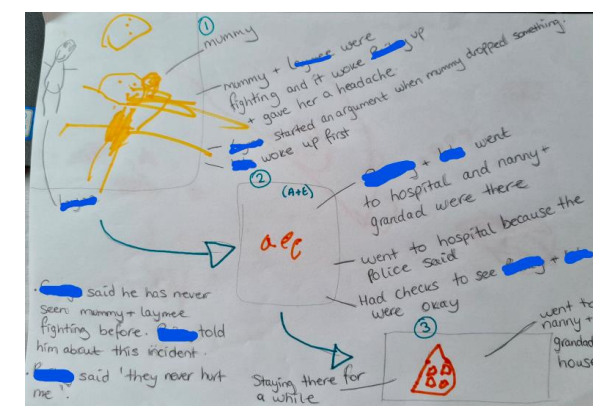 ①
mummy
mummy + were
fighting and it woke up
+ gave her a headache.
started an argument when mummy dropped something.
woke up first
②
(A+E)
aee
+ went
to hospital and nanny +
grandad were there
went to hospital because the
Police said
Had checks to see +
were okay
. said he has never
seen mummy + laymee
fighting before. told
him about this incident.
. said 'they never hurt
me'.
③
went to
nanny +
grandad
house
Staying there for
a while